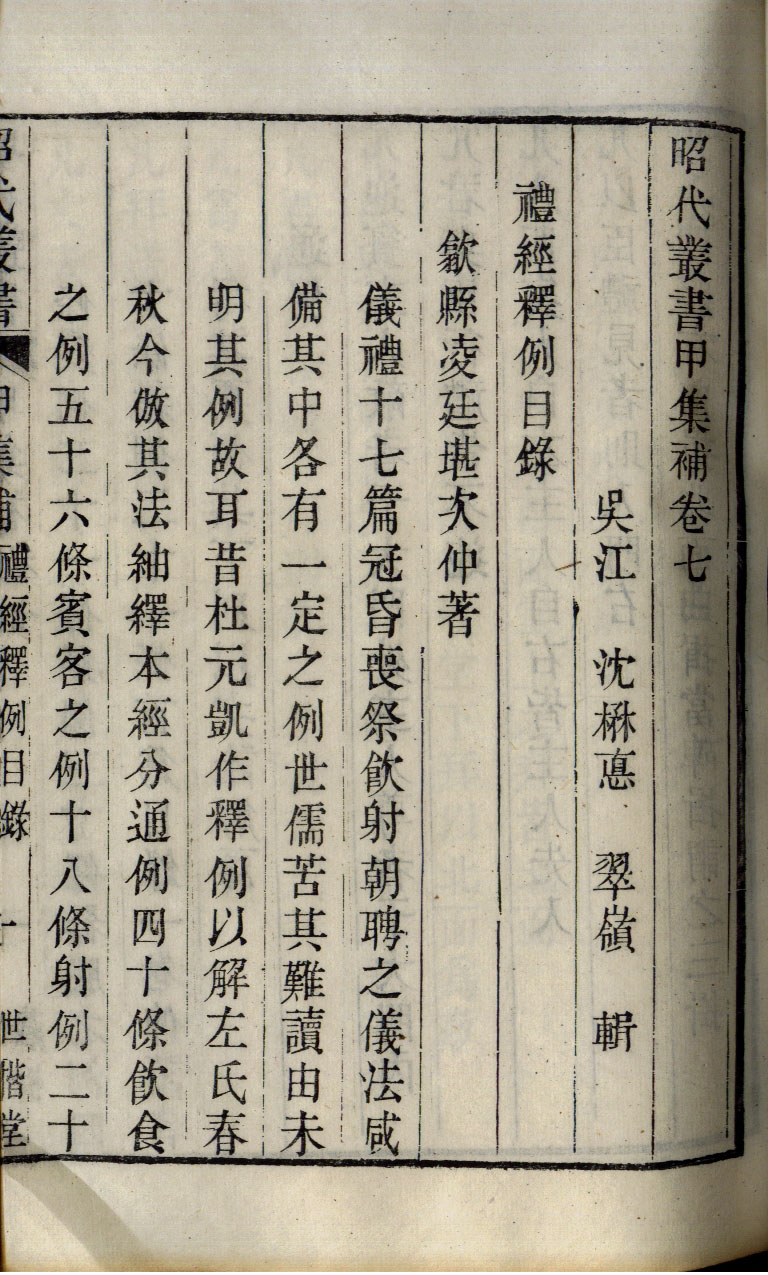 昭代叢書甲集補卷七
吳江 沈楙悳 翠嶺 輯
禮經釋例目錄
歙縣凌廷堪次仲著
儀禮十七篇冠昏喪祭飲射朝聘之儀法咸
備其中各有一定之例世儒苦其難讀由未
明其例故耳昔杜元凱作釋例以解左氏春
秋今倣其法紬繹本經分通例四十條飲食
之例五十六條賓客之例十八條射例二十
昭代叢書 甲集補 禮經釋例目錄 世楷堂